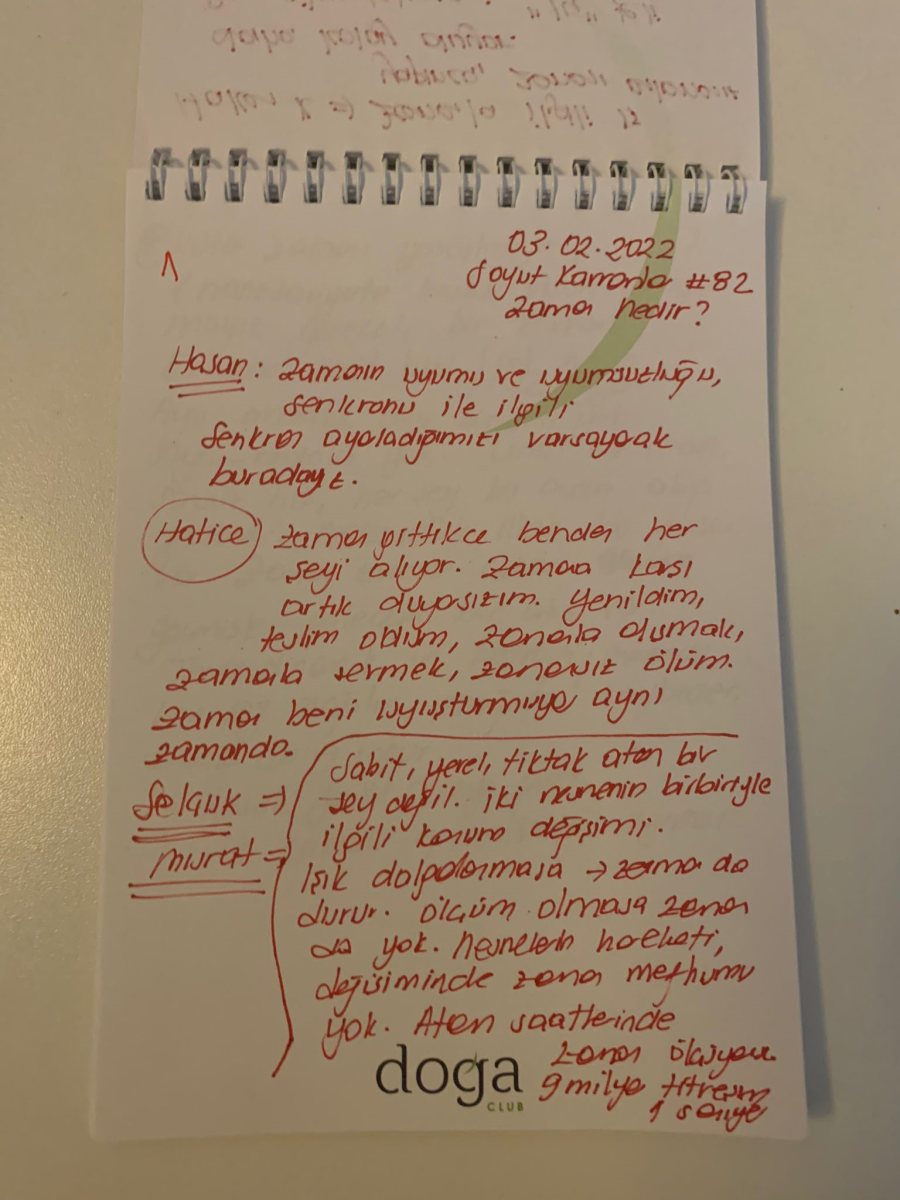 daha kolay oluyor.
1
03.02.2022
Soyut Kamara #82
Zaman nedir?
Hasan: Zamanın uyumu ve uyumsuzluğu,
senkronu ile ilgili
Senkron ayarladığımızı varsayarak
buradayız.
Hatice Zaman gittikçe benden her
şeyi alıyor. Zamana karşı
artık duyarsızım. Yenildim,
teslim oldum, zamanla olmak,
zamanla vermek, zamansız ölüm.
Zaman beni uyuşturmuyor aynı
zamanda.
Selçuk =>
Murat =>
Sabit, yerel, tiktak atan bir
şey değil. İki nesnenin birbiriyle
ilgili konum değişimi.
Işık dalgalanmasa → zaman da
durur. Ölçüm olmasa zaman
da yok. Nesnelerin hareketi,
değişiminde zaman mefhumu
yok. Atom saatlerinde
zaman ölçüyor
9 milyar titreşim
1 saniye
doğa
CLUB